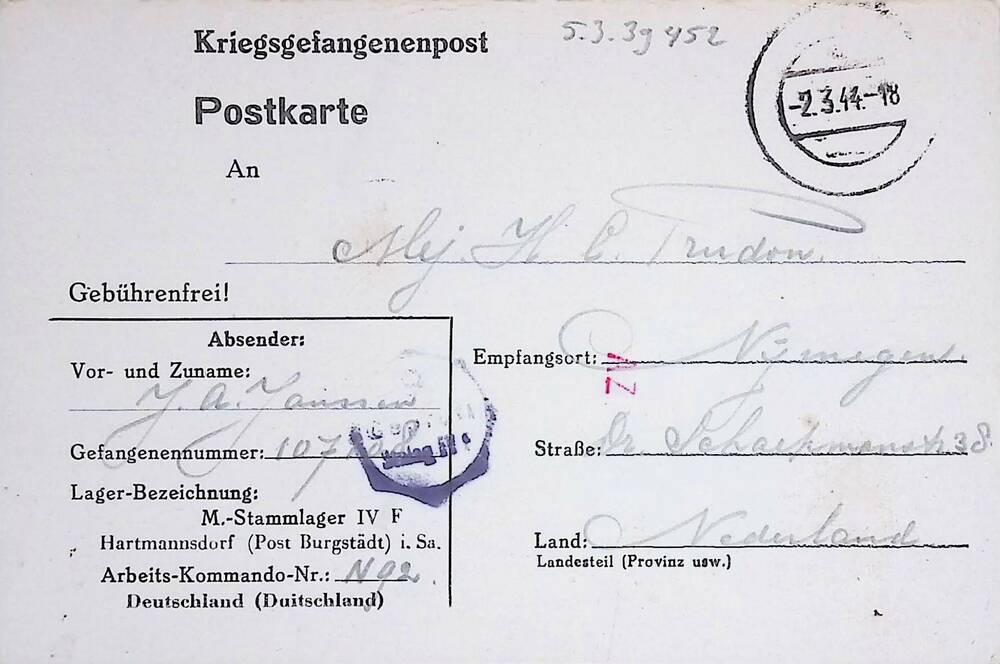 Kriegsgefangenenpost
5.3.39 452
Postkarte
-2.3.44.-18
An
Mej. H. C. Trudon.
Gebührenfrei!
Absender:
Vor- und Zuname:
J. A. Janssen
Gefangenennummer:
Lager-Bezeichnung:
M.-Stammlager IV F
Hartmannsdorf (Post Burgstädt) i. Sa.
Arbeits-Kommando-Nr.: N92.
Deutschland (Duitschland)
Empfangsort: Nijmegen
Straße: Dr. Schaepmanstr 38
Land: Nederland
Landesteil (Provinz usw.)